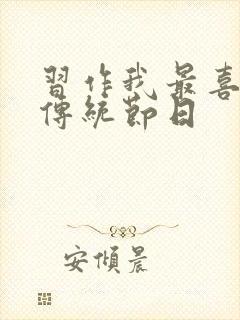 習作我最喜
傳統節日
安傾晨